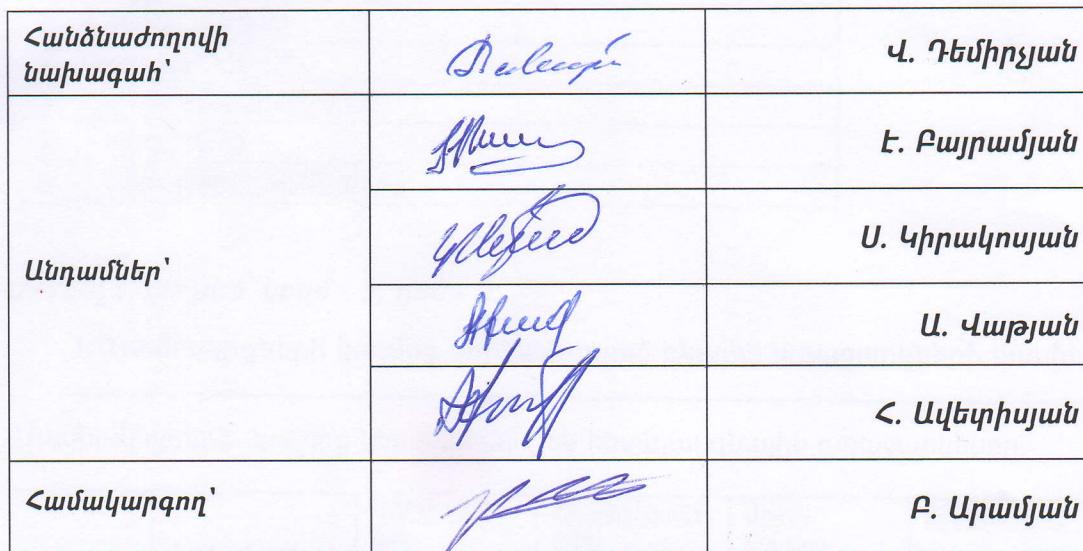 Հանձնաժողովի
նախագահ՝
Վ. Դեմիրչյան
Անդամներ՝
Է. Բայրամյան
Ս. Կիրակոսյան
Ա. Վաթյան
Հ. Ավետիսյան
Համակարգող՝
Բ. Արամյան